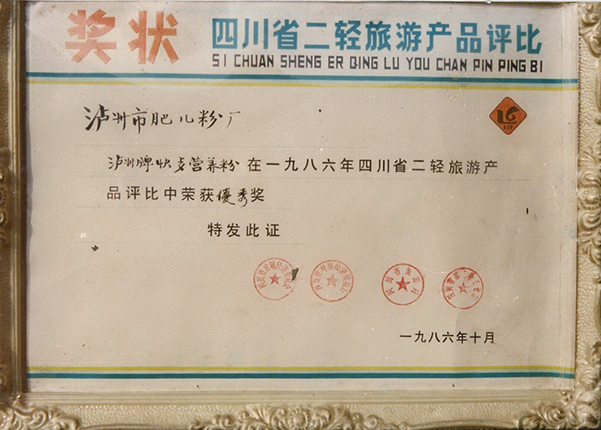 奖状
四川省二轻旅游产品评比
SI CHUAN SHENG ER QING LU YOU CHAN PIN PING BI
泸州市肥儿粉厂
泸州牌快餐营养粉在一九八六年四川省二轻旅游产
品评比中荣获優秀奖
特发此证
一九八六年十月